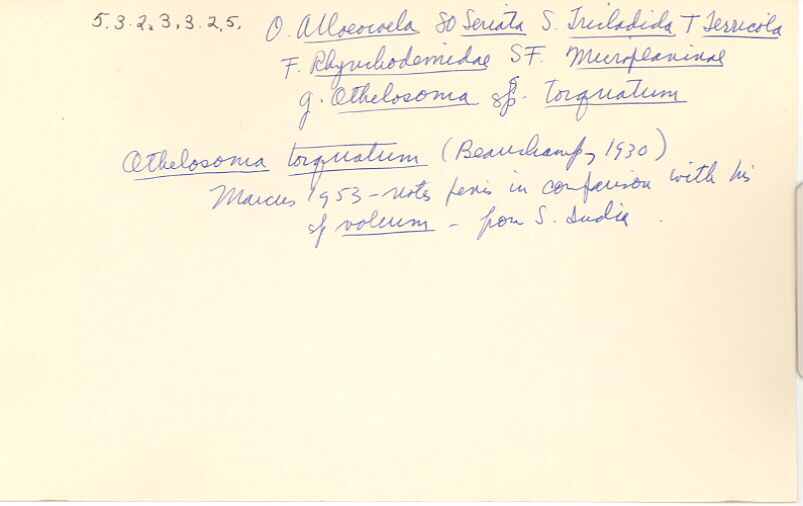 5.3.2.3.3.2.5. O. Alloeocoela SO Seriata S. Tricladida T Terricola
F. Rhynchodemidae SF. Microplaninae
g. Othelosoma sp. torquatum
Othelosoma torquatum (Beauchamp, 1930)
Marcus 1953 - notes penis in comparison with his
sp voleum - from S. India.